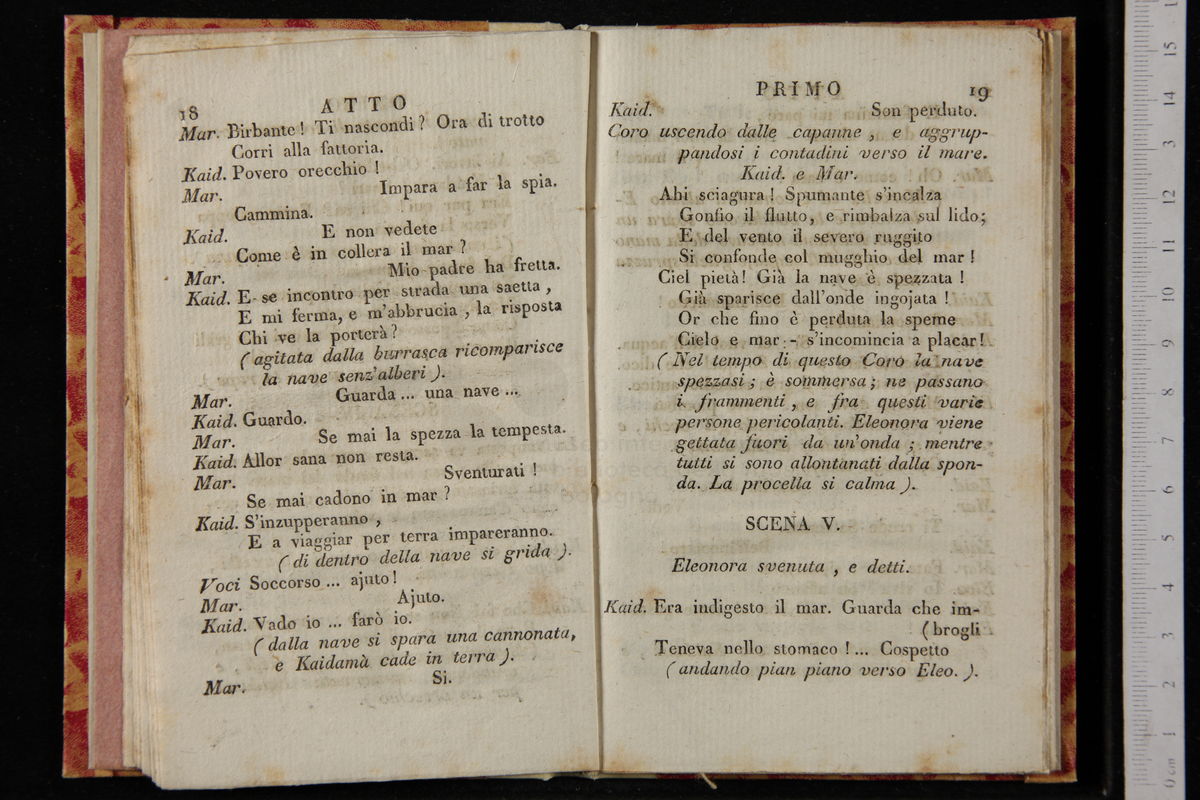 18 ATTO
Mar. Birbante! Ti nascondi? Ora di trotto
Corri alla fattoria.
Kaid. Povero orecchio!
Mar. Impara a far la spia.
Cammina.
Kaid. E non vedete
Come è in collera il mar?
Mar. Mio padre ha fretta.
Kaid. E se incontro per strada una saetta,
E mi ferma, e m'abbrucia, la risposta
Chi ve la porterà?
(agitata dalla burrasca ricomparisce
la nave senz'alberi).
Mar. Guarda... una nave...
Kaid. Guardo.
Mar. Se mai la spezza la tempesta.
Kaid. Allor sana non resta.
Mar. Sventurati!
Se mai cadono in mar?
Kaid. S'inzupperanno,
E a viaggiar per terra impareranno.
(di dentro della nave si grida).
Voci Soccorso... ajuto!
Mar. Ajuto.
Kaid. Vado io... farò io.
(dalla nave si spara una cannonata,
e Kaidamà cade in terra).
Mar. Si.
PRIMO 19
Kaid. Son perduto.
Coro uscendo dalle capanne, e aggrup-
pandosi i contadini verso il mare.
Kaid. e Mar.
Ahi sciagura! Spumante s'incalza
Gonfio il flutto, e rimbalza sul lido;
E del vento il severo ruggito
Si confonde col mugghio del mar!
Ciel pietà! Già la nave è spezzata!
Già sparisce dall'onde ingojata!
Or che fino è perduta la speme
Cielo e mar - s'incomincia a placar!
(Nel tempo di questo Coro la nave
spezzasi; è sommersa; ne passano
i frammenti, e fra questi varie
persone pericolanti. Eleonora viene
gettata fuori da un'onda; mentre
tutti si sono allontanati dalla spon-
da. La procella si calma).
SCENA V.
Eleonora svenuta, e detti.
Kaid. Era indigesto il mar. Guarda che im-
(brogli
Teneva nello stomaco!... Cospetto
(andando pian piano verso Eleo.).
15
14
13
12
11
10
9
8
7
6
5
4
3
2
1
0 cm